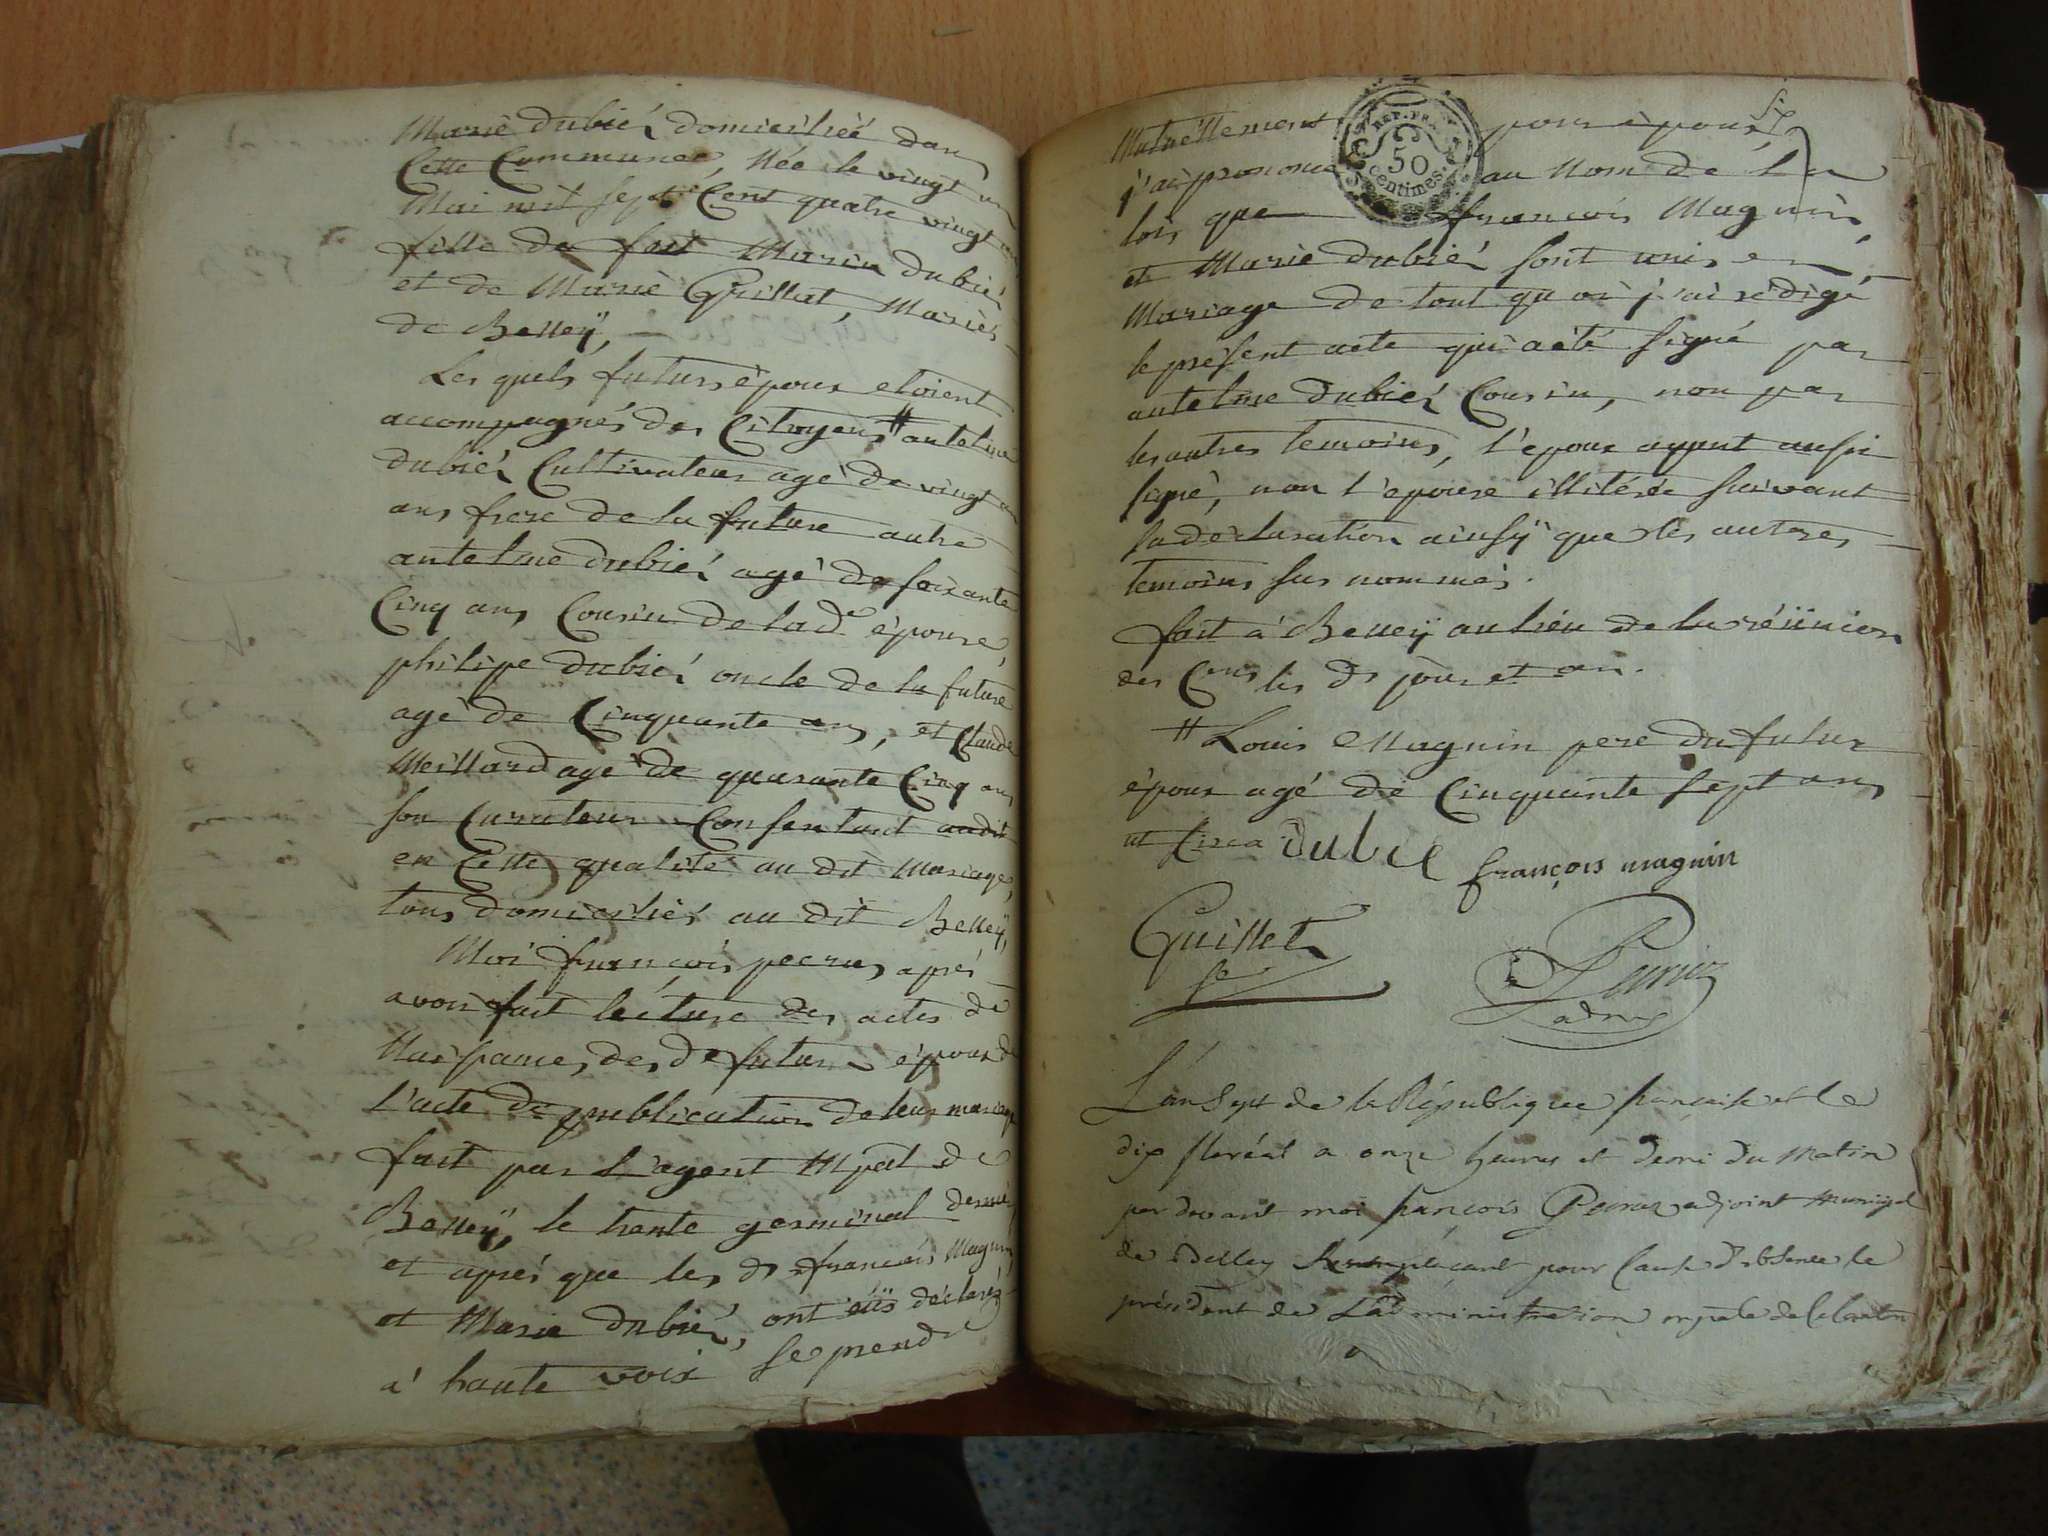 Marie dubiéz domiciliée dans
Cette Commune, Née le vingt un
Mai mil sept Cent quatre vingt
fille de feit Marin dubiéz
et de Marie Grillat, Mariés
de Belleÿ,
Les quels futurs épour etoient
accompagnés des Citoyens # antelme
dubiéz Cultivateur agé de vingt
ans frere de la future autre
antelme dubiéz agé de soixante
Cinq ans Cousin de lad.e épouse,
philipe dubiéz oncle de la future
agé de Cinquante ans, et Claude
Meillard agé de quarante Cinq ans
son Curateur Consentant audit
en Cette qualité au dit Mariage,
tous domiciliés au dit Belleÿ,
Moi françois pecruz aprés
avoir fait lécture des actes de
Naissances des d.s futurs épour de
l'acte de publication de leur mariage
fait par l'agent Mpal de
Belleÿ, le trente germinal dernier
et aprés que les ds françois Magnin,
et Marie dubiéz, ont eüs déclaréz
a haute voix se prendre
Mutuellement pour épour,
j'ai prononcé au Nom de la
loi, que françois Magnin,
et Marie dubiéz sont unis en
Mariage de tout quoi j'ai rédigé
le présent acte qui a été signé par
antelme dubiéz Cousin, non par
les autres temoins, l'epoux ayant aussi
signé, non l'epouse illitérée suivant
sa declaration ainsÿ que les autres
temoins sus nommés.
fait á Belleÿ au lieu de la réünion
des Cens les ds jour et an.
# Louis Magnin pere du futur
épour agé de Cinquante sept ans
ut circa dubie françois magnin
Guillet
se
adm
L'an Sept de la République française et le
dix floréal a onze heures et demi du Matin
par devant moi françois Pecruz adjoint Municipal
de Belley Remplaçant pour Cause d'absence le
président de L'administration mpale de Ce Canton
REP. FRA
50
centimes.